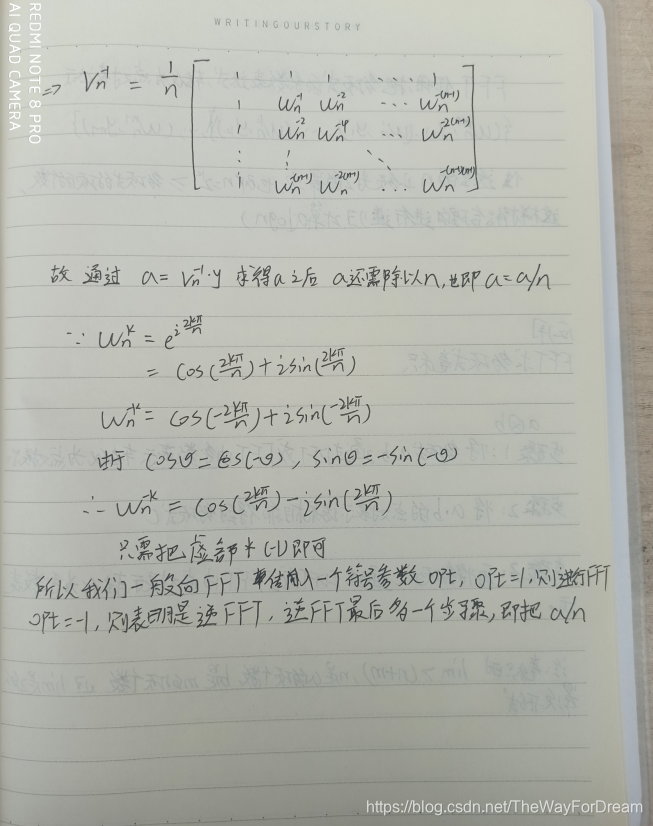 WRITINGOURSTORY
REDMI NOTE 8 PRO
AI QUAD CAMERA
⇒ Vn^-1 = 1/n [ 1 1 1 ... 1
1 ωn^-1 ωn^-2 ... ωn^-(n-1)
1 ωn^-2 ωn^-4 ... ωn^-2(n-1)
⋮ ⋮ ⋱
1 ωn^-(n-1) ωn^-2(n-1) ... ωn^-(n-1)(n-1) ]
故 通过 a = Vn^-1·y 求得a之后 a还需除以n,也即 a = a/n
∵ ωn^k = e^(i 2kπ/n)
= cos(2kπ/n)+isin(2kπ/n)
ωn^-k = cos(-2kπ/n)+isin(-2kπ/n)
由于 cosθ=cos(-θ), sinθ=-sin(-θ)
∴ ωn^-k = cos(2kπ/n)-isin(2kπ/n)
只需把虚部*(-1)即可
所以我们一般向FFT 传入一个符号参数 opt, opt=1,则进行FFT
opt=-1,则表明是逆FFT,逆FFT最后多一个步骤,即把 a/n
https://blog.csdn.net/TheWayForDream